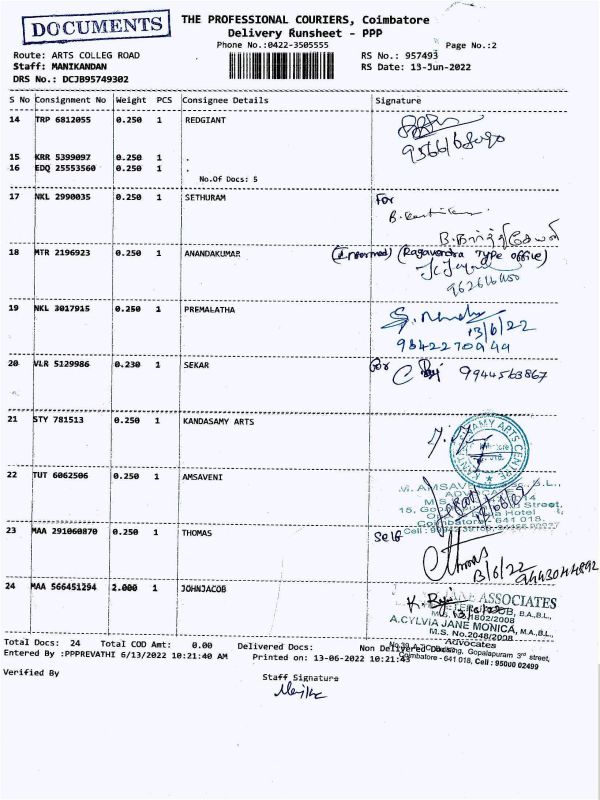 DOCUMENTS
THE PROFESSIONAL COURIERS, Coimbatore
Delivery Runsheet - PPP
Phone No.:0422-3505555
Page No.:2
Route: ARTS COLLEG ROAD
RS No.: 957493
Staff: MANIKANDAN
RS Date: 13-Jun-2022
DRS No.: DCJB95749302
S No Consignment No Weight PCS Consignee Details Signature
14 TRP 6812055 0.250 1 REDGIANT
15 KRR 5399097 0.250 1 .
16 EDQ 25553560 0.250 1 .
No.Of Docs: 5
17 NKL 2990035 0.250 1 SETHURAM For
18 MTR 2196923 0.250 1 ANANDAKUMAR (Informed) (Ragavendra Type office)
19 NKL 3017915 0.250 1 PREMALATHA
13/6/22
20 VLR 5129986 0.230 1 SEKAR
9944563867
21 STY 781513 0.250 1 KANDASAMY ARTS
22 TUT 6062506 0.250 1 AMSAVENI
Coimbatore - 641 018.
23 MAA 291060870 0.250 1 THOMAS Self
13/6/22
24 MAA 566451294 2.000 1 JOHNJACOB
ASSOCIATES
B.A., B.L.,
A.CYLVIA JANE MONICA, M.A.,B.L.,
M.S. No.2048/2008
Advocates
Total Docs: 24 Total COD Amt: 0.00 Delivered Docs: Non Delivered Docs:
Gopalapuram 3rd street,
Entered By :PPPREVATHI 6/13/2022 10:21:40 AM Printed on: 13-06-2022 10:21:43
Coimbatore - 641 018, Cell : 95000 02499
Verified By
Staff Signature